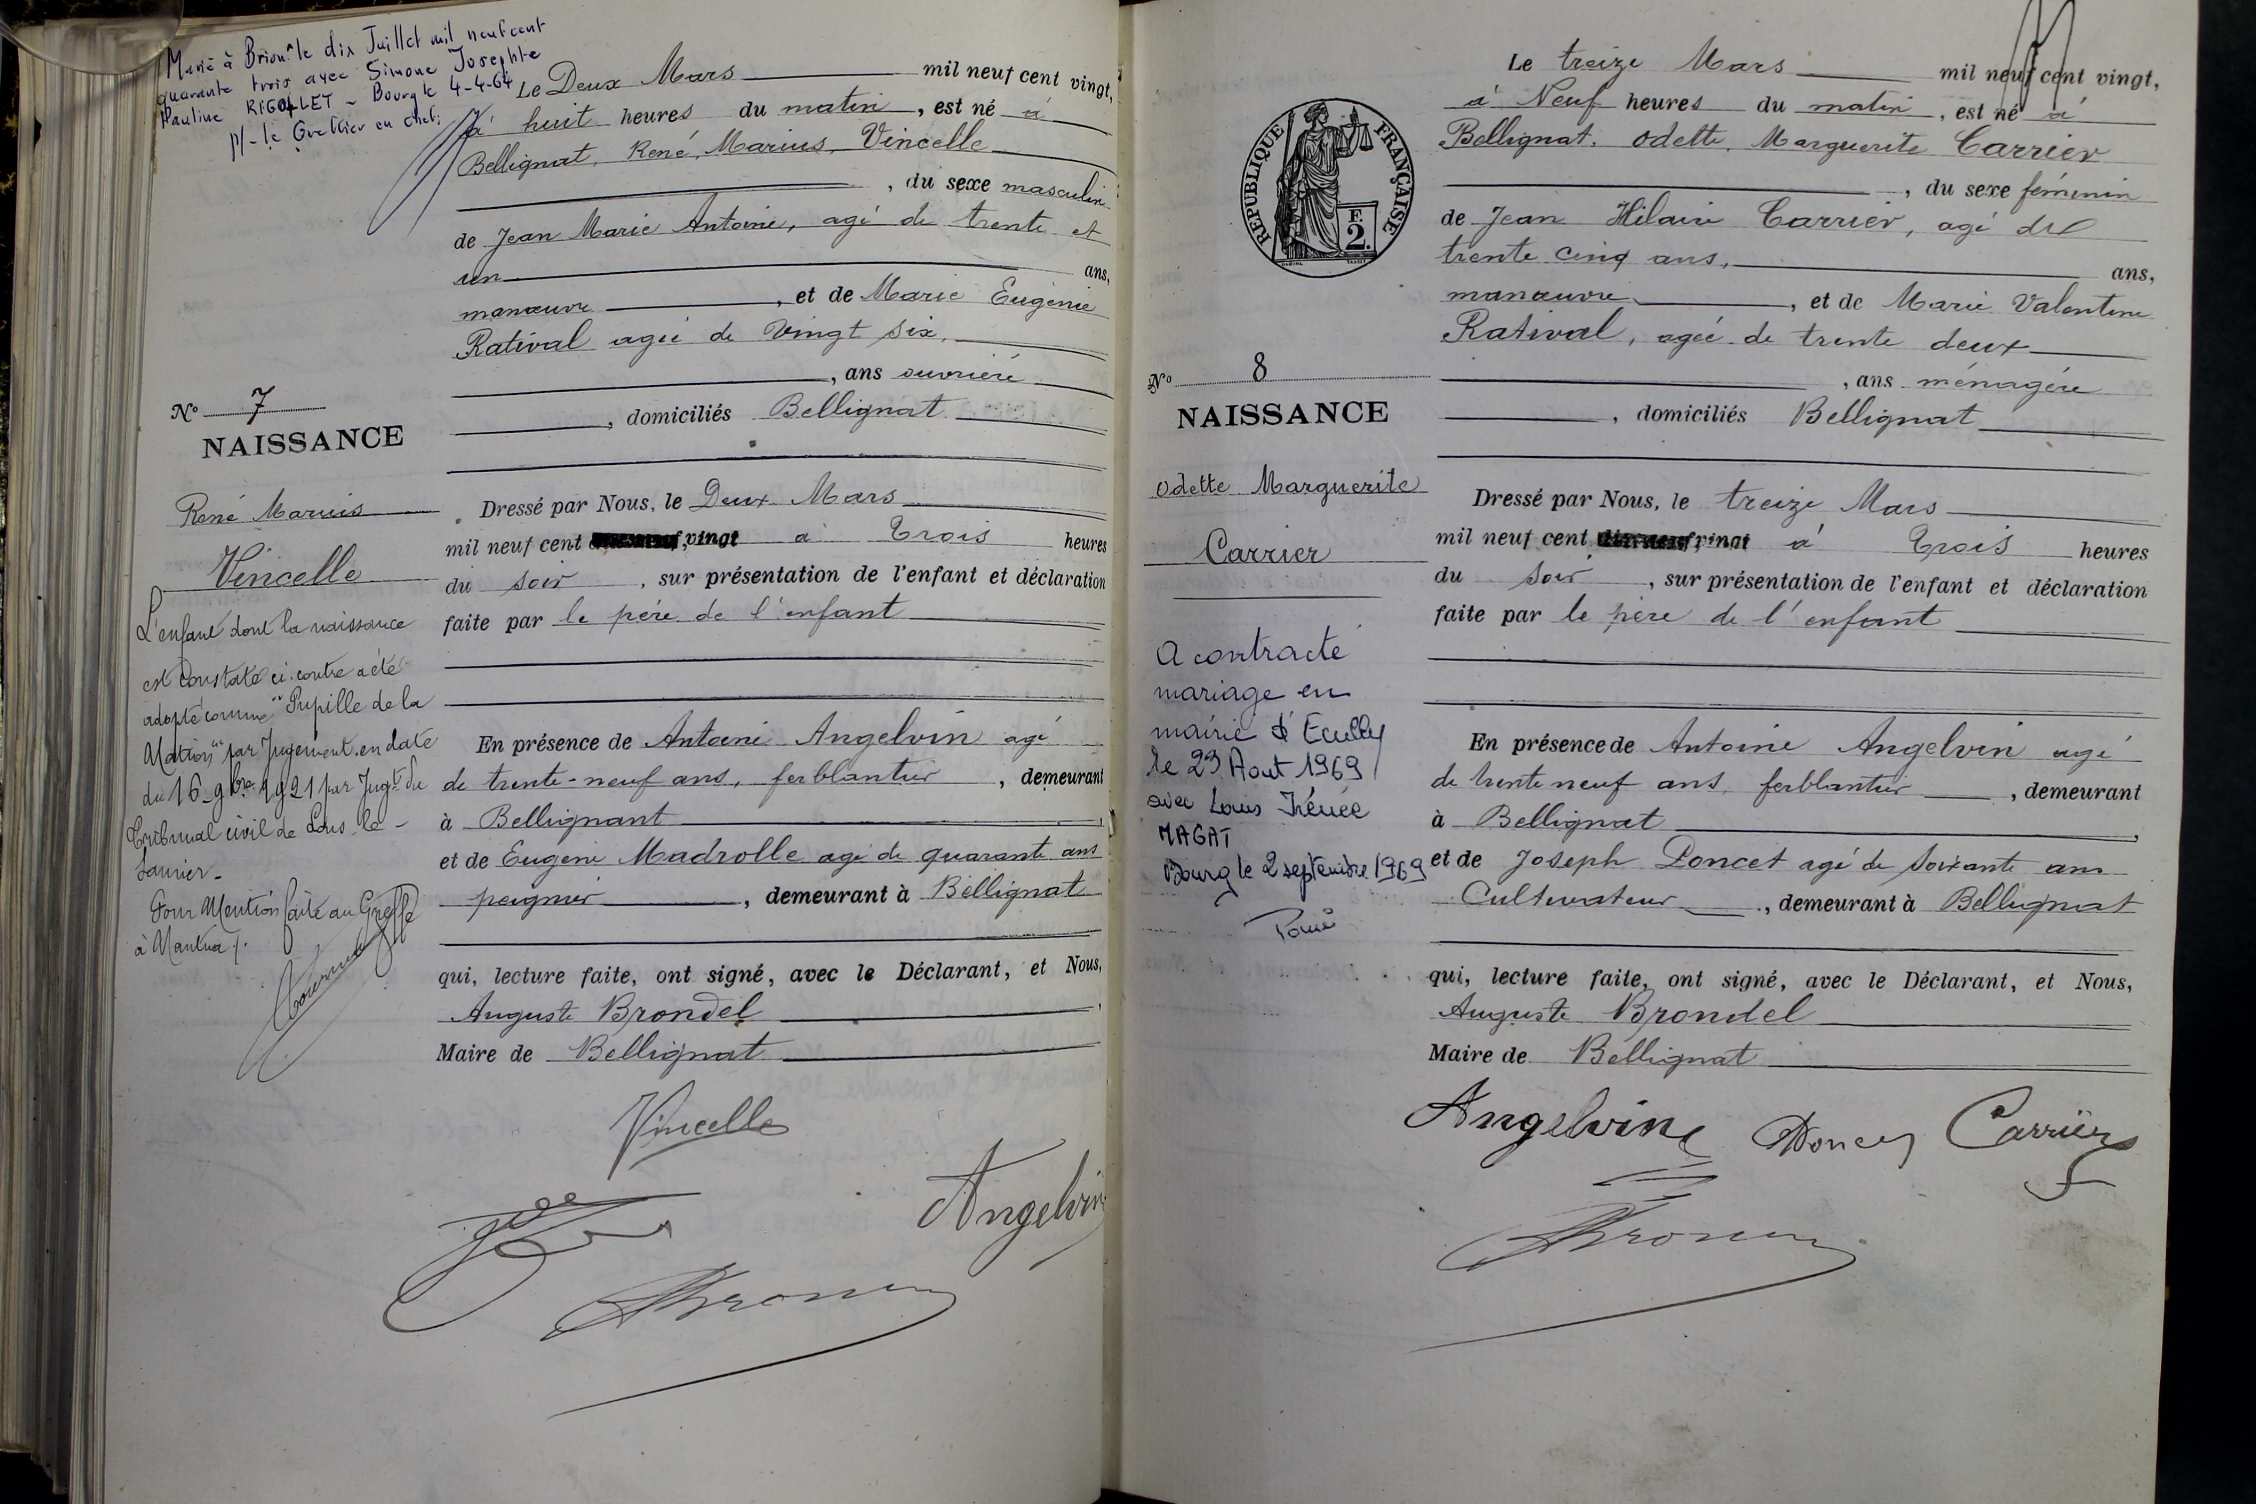 Marié à Brion le dix Juillet mil neuf cent
quarante trois avec Simone Josephte
Pauline RIGOLLET - Bourg le 4-4-64
p/- le Greffier en chef:
Le Deux Mars mil neuf cent vingt,
à huit heures du matin, est né à
Bellignat, René, Marius, Vincelle
, du sexe masculin
de Jean Marie Antoine, agé de trente et
un ans,
manœuvre, et de Marie Eugénie
Ratival agée de vingt six,
, ans ouvrière
, domiciliés Bellignat
No 7
NAISSANCE
René Marius
Vincelle
L'enfant dont la naissance
est constatée ci-contre a été
adopté comme "Pupille de la
Nation" par Jugement en date
du 16 9bre 1921 par Jugt du
Tribunal civil de Lons-le-
Saunier-
Pour Mention faite au Greffe
à Nantua
Dressé par Nous, le Deux Mars
mil neuf cent vingt à Trois heures
du soir, sur présentation de l'enfant et déclaration
faite par le père de l'enfant
En présence de Antoine Angelvin agé
de trente-neuf ans, ferblantier, demeurant
à Bellignant
et de Eugène Madrolle agé de quarante ans
peignier, demeurant à Bellignat
qui, lecture faite, ont signé, avec le Déclarant, et Nous,
Auguste Brondel
Maire de Bellignat
Vincelle
Angelvin
Le treize Mars mil neuf cent vingt,
à Neuf heures du matin, est né à
Bellignat, Odette, Marguerite Carrier
, du sexe féminin
de Jean Hilaire Carrier, agé de
trente cinq ans, ans,
manœuvre, et de Marie Valentine
Ratival, agée de trente deux
, ans ménagère
, domiciliés Bellignat
RÉPUBLIQUE FRANÇAISE
F.
2.
No 8
NAISSANCE
Odette Marguerite
Carrier
A contracté
mariage en
mairie d'Ecully
le 23 Aout 1969
avec Louis Irénée
MAGAT
Bourg le 2 septembre 1969
Dressé par Nous, le treize Mars
mil neuf cent vingt à Trois heures
du soir, sur présentation de l'enfant et déclaration
faite par le père de l'enfant
En présence de Antoine Angelvin agé
de trente neuf ans, ferblantier, demeurant
à Bellignat
et de Joseph Poncet agé de soixante ans
Cultivateur, demeurant à Bellignat
qui, lecture faite, ont signé, avec le Déclarant, et Nous,
Auguste Brondel
Maire de Bellignat
Angelvin Poncet Carrier